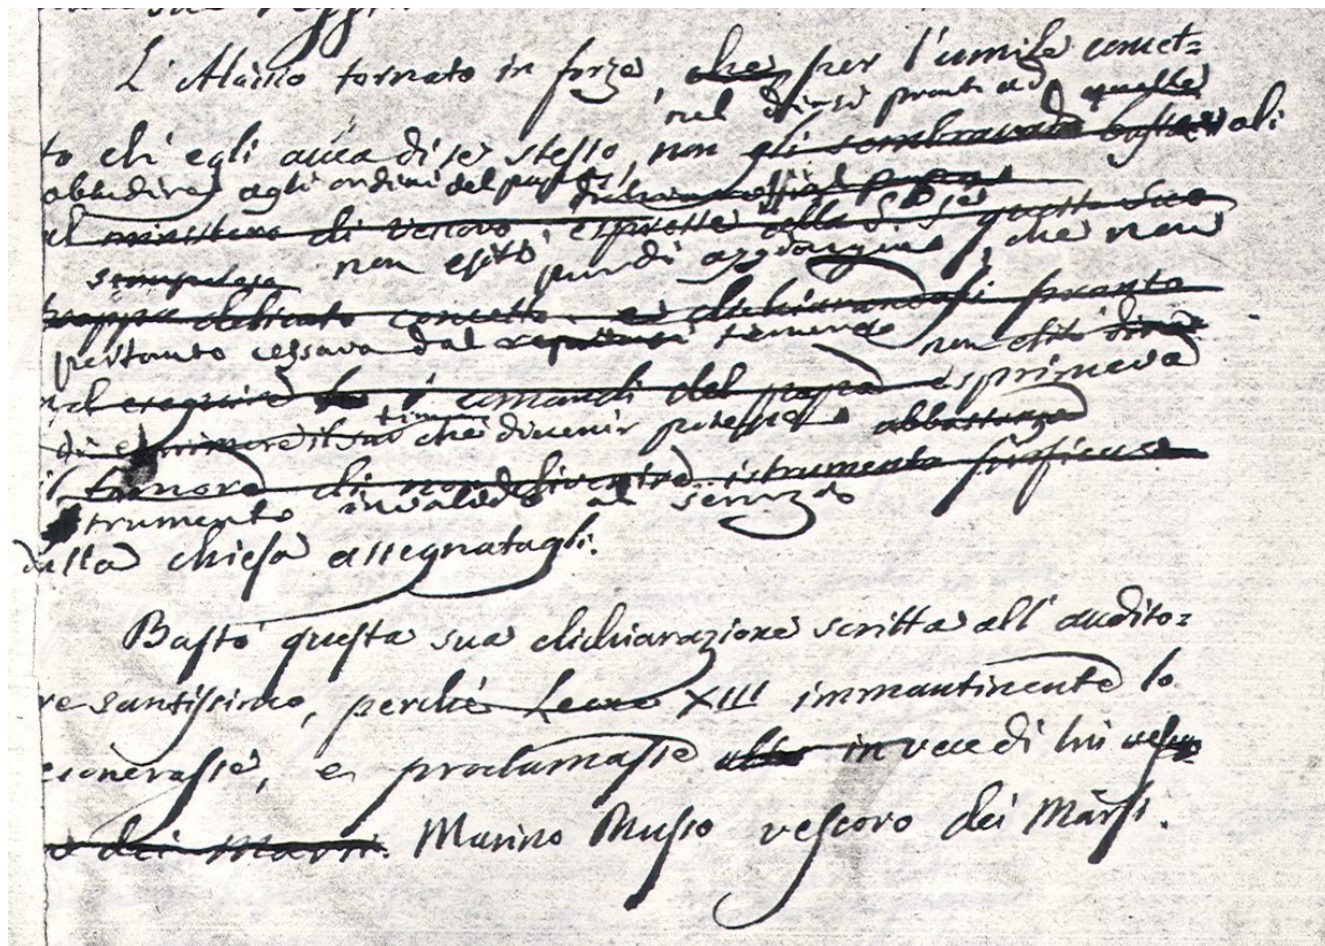 L'Aloisio tornato in forze, che, per l'umile concet=
nel dirsi pronti ad quelle
to ch'egli avea di se stesso, non gli sembravano bastevoli
obbedire agli ordini del papa,
al ministero di vescovo, espresse alla S. Sede questo suo
scrupoloso non esitò pur di aggiungere, che non
troppo delicato concetto, e dichiarandosi pronto
pertanto cessava dal temere non esitò
ad eseguire i comandi del papa esprimeva
di esprimere il timor che divenir potesse abbastanza
il timore di non divenire istrumento
strumento invalido al servizio
dalla chiesa assegnatogli.
Bastò questa sua dichiarazione scritta all'audito=
re santissimo, perchè Leone XIII immantinente lo
esonerasse, e proclamasse altro in vece di lui vesco
vo dei Marsi. Marino Russo vescovo dei Marsi.